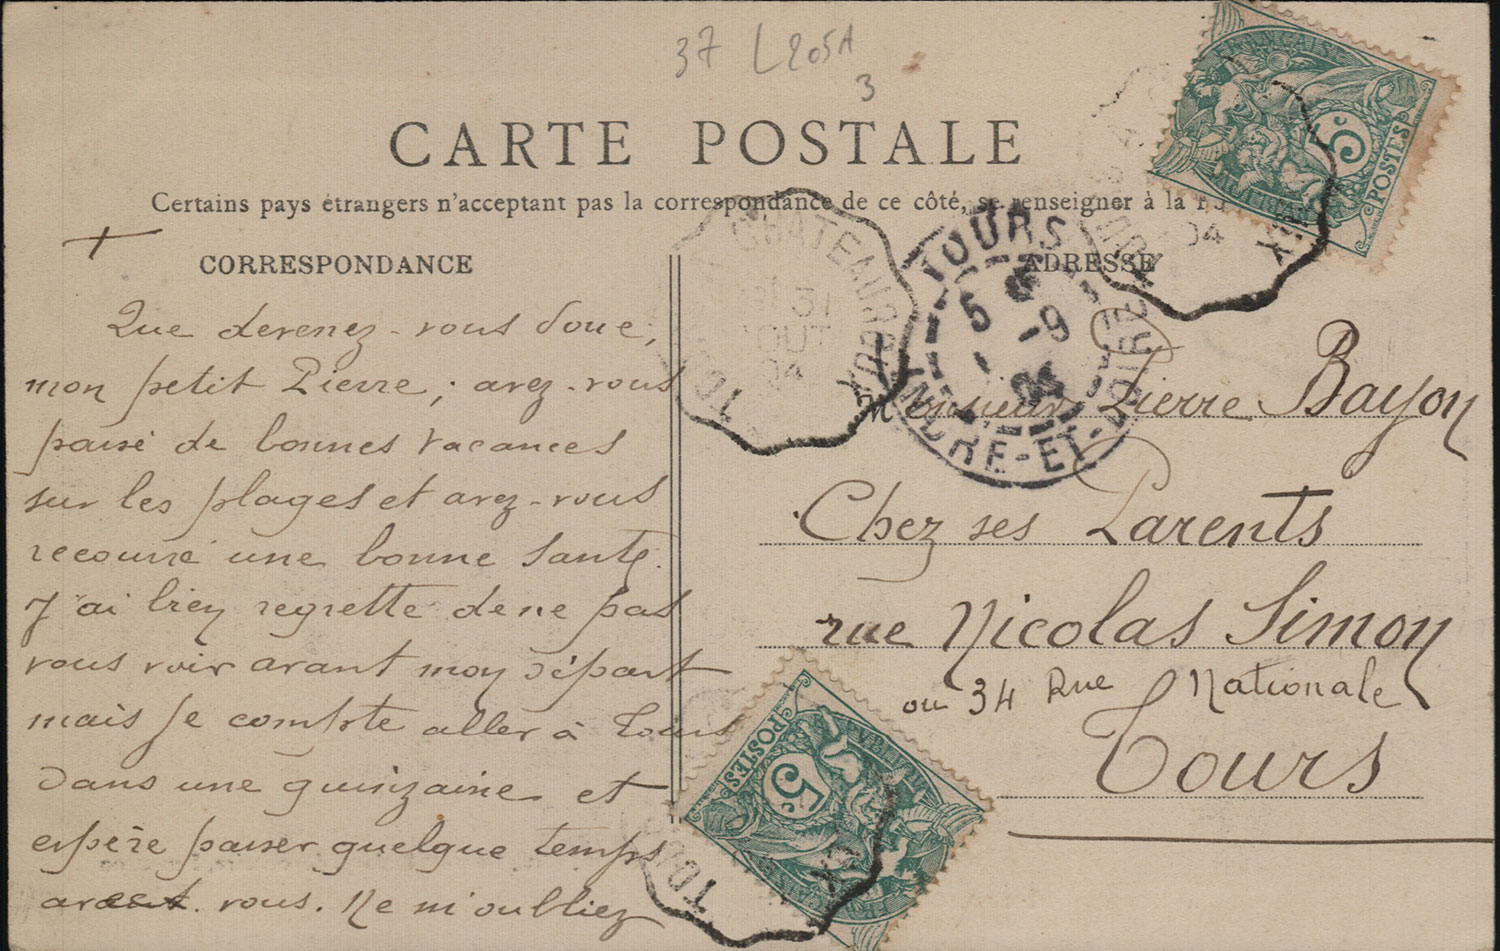 37 L205A
3
CARTE POSTALE
Certains pays étrangers n'acceptent pas la correspondance de ce côté, se renseigner à la P
CORRESPONDANCE
ADRESSE
Que devenez-vous donc,
mon petit Pierre ; avez-vous
passé de bonnes vacances
sur les plages et avez-vous
recouvré une bonne santé.
J'ai bien regretté de ne pas
vous voir avant mon départ
mais je compte aller à Tours
dans une quinzaine et
espère passer quelque temps
vous. Ne m'oubliez
Monsieur Pierre Bayon
Chez ses Parents
rue Nicolas Simon
ou 34 Rue Nationale
Tours
CHATEAUROUX
31
AOUT
04
TOU
TOURS
5 -9
04
INDRE-ET-LOIRE
FRANÇAISE
5c
POSTES
04
UX
POSTES
5c
TOU
X